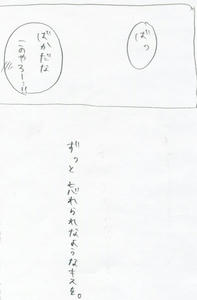 ばっ
ばかだな
このやろー!!
ずっと忘れられなようなキスを。